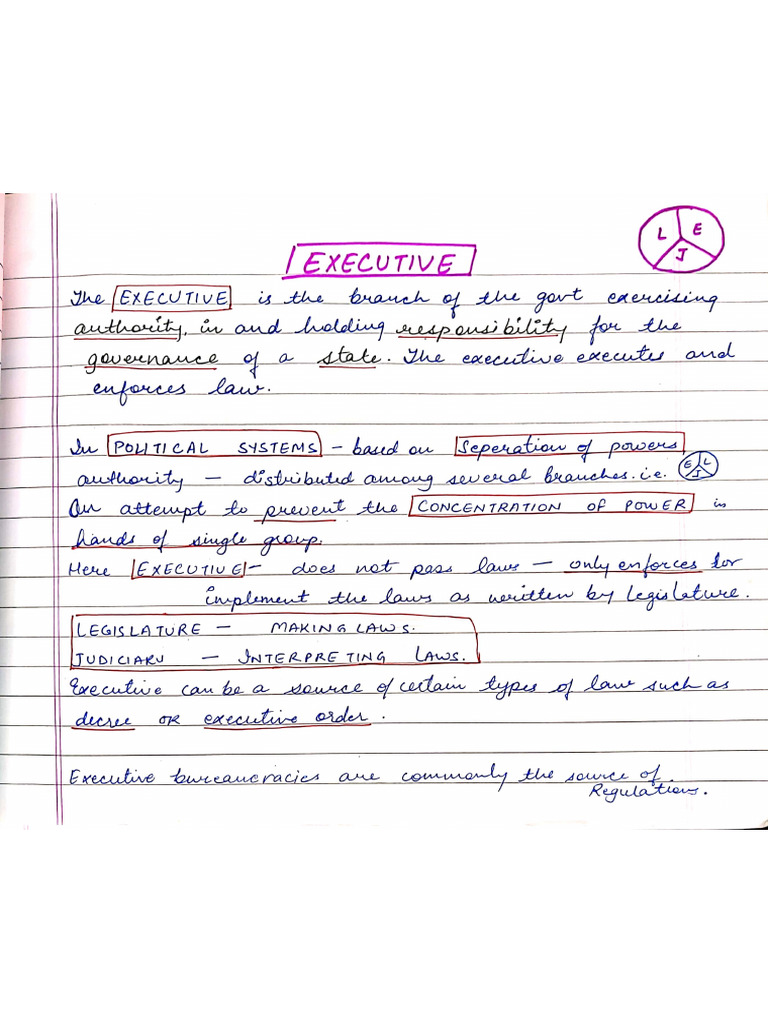 L E
J
EXECUTIVE
The EXECUTIVE is the branch of the govt exercising
authority, in and holding responsibility for the
governance of a state. The executive executes and
enforces law.
In POLITICAL SYSTEMS - based on Seperation of powers
authority - distributed among several branches. i.e. E L J
An attempt to prevent the CONCENTRATION OF POWER in
hands of single group.
Here EXECUTIVE - does not pass laws - only enforces or
implement the laws as written by legislature.
LEGISLATURE - MAKING LAWS.
JUDICIARY - INTERPRETING LAWS.
Executive can be a source of certain types of law such as
decree OR executive order.
Executive bureaucracies are commonly the source of
Regulations.